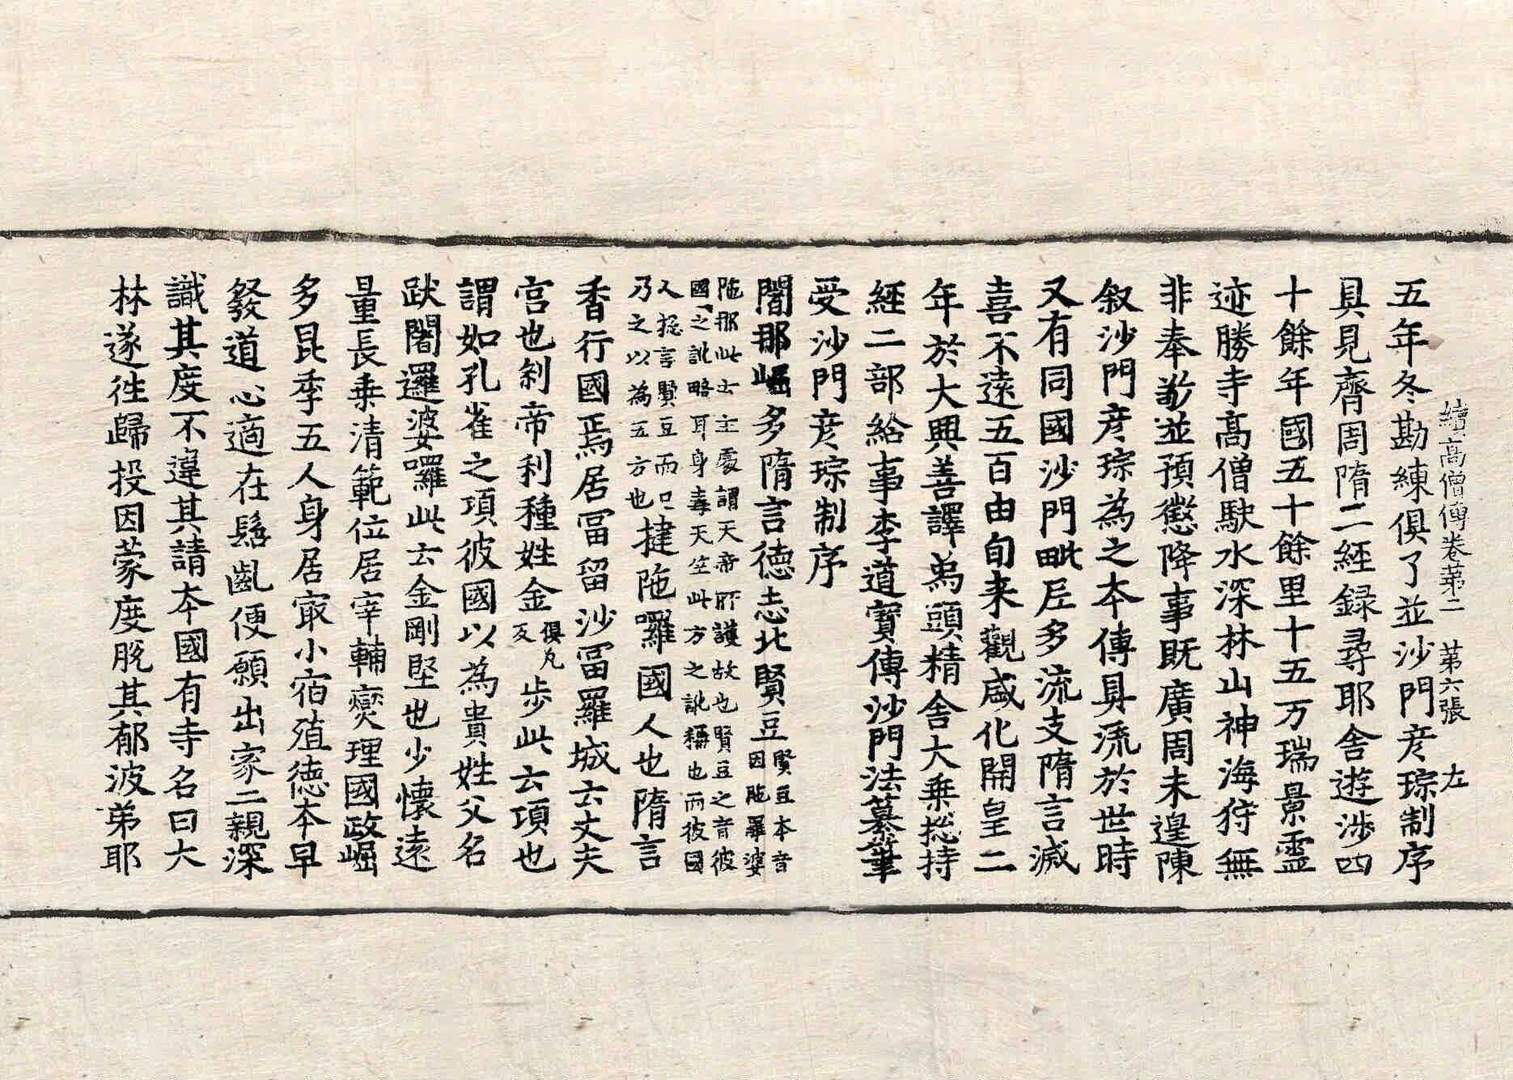 續高僧傳卷苐二 第六張 左
五年冬勘練俱了並沙門彦琮制序
具見齊周隋二經録尋耶舍遊涉四
十餘年國五十餘里十五万瑞景靈
迹勝寺髙僧駃水深林山神海狩無
非奉敬並預懲降事既廣周未遑陳
叙沙門彦琮為之夲傳具流於世時
又有同國沙門毗尼多流支隋言滅
喜不遠五百由旬来觀盛化開皇二
年於大興善譯為頭精舍大乗揔持
經二部給事李道寳傳沙門法纂筆
受沙門彦琮制序
闍那崛多隋言德志北賢豆賢豆本音因陁羅婆
陁那此云主處謂天帝所護故也賢豆之音彼
國之訛略耳身毒天竺此方之訛稱也而彼國
人揔言賢豆而已
乃之以為五方也揵陁囉國人也隋言
香行國焉居富留沙富羅城云丈夫
宫也刹帝利種姓金俱凡反步此云項也
謂如孔雀之項彼國以為貴姓父名
跋闍邏婆囉此云金剛堅也少懷遠
量長乗清範位居宰輔爕理國政崛
多昆季五人身居㝡小宿殖徳本早
發道心適在髫齓便願出家二親深
識其度不違其請夲國有寺名曰大
林遂徃歸投因蒙度脱其郁波弟耶